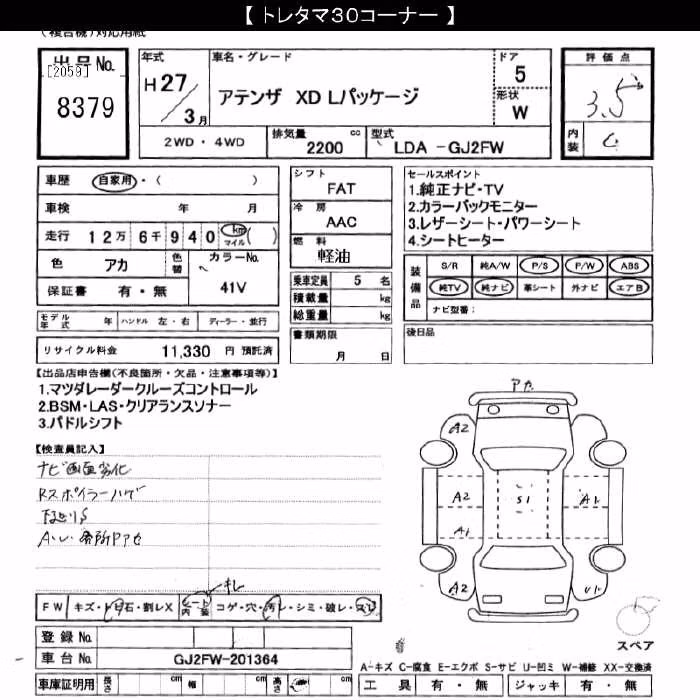 【トレタマ30コーナー】
(複合機)対応用紙
出品No.
[2059]
8379
年式
H27/3月
車名・グレード
アテンザ XD Lパッケージ
ドア
5
形状
W
2WD・4WD
排気量 cc
2200
型式
LDA -GJ2FW
評価点
3.5
内装
C
車歴 自家用・( )
車検 年 月
走行 12万6千940 km マイル ( )
色 アカ 色替 カラーNo.
保証書 有・無 41V
モデル年式 年 ハンドル 左・右 ディーラー・並行
リサイクル料金 11,330 円 預託済
シフト
FAT
冷房
AAC
燃料
軽油
乗車定員 5 名
積載量 kg
総重量 kg
書類期限
月 日
セールスポイント
1.純正ナビ・TV
2.カラーバックモニター
3.レザーシート・パワーシート
4.シートヒーター
装備品
S/R 純A/W P/S P/W ABS
純TV 純ナビ 革シート 外ナビ エアB
ナビ型番:
後日品
【出品店申告欄(不良箇所・欠品・注意事項等)】
1.マツダレーダークルーズコントロール
2.BSM・LAS・クリアランスソナー
3.パドルシフト
【検査員記入】
ナビ画面劣化
Rスポイラーハゲ
下廻りS
A.U.各所Pアセ
アカ
A2
A2
S1
A1
A1
A2
U1
スペア
キレ
FW キズ・トビ石・割レX シート内装 コゲ・穴・汚レ・シミ・破レ・スレ
登録No.
車台No. GJ2FW-201364
車庫証明用 長さ cm 幅 cm 高さ cm
A-キズ C-腐食 E-エクボ S-サビ U-凹ミ W-補修 XX-交換済
工具 有・無 ジャッキ 有・無